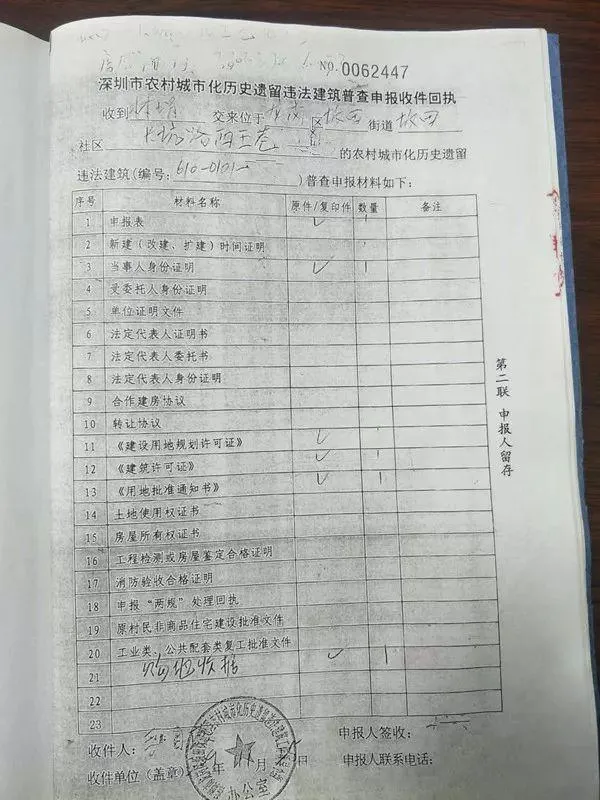 NO.0062447
深圳市农村城市化历史遗留违法建筑普查申报收件回执
收到 交来位于 区 坂田 街道 坂田
社区 的农村城市化历史遗留
违法建筑(编号: 610-0101 )普查申报材料如下:
序号 材料名称 原件/复印件 数量 备注
1 申报表 ✓ 1
2 新建(改建、扩建)时间证明
3 当事人身份证明 ✓ 1
4 受委托人身份证明
5 单位证明文件
6 法定代表人证明书
7 法定代表人委托书
8 法定代表人身份证明
9 合作建房协议
10 转让协议
11 《建设用地规划许可证》 ✓ 1
12 《建筑许可证》 ✓ 1
13 《用地批准通知书》 ✓ 1
14 土地使用权证书
15 房屋所有权证书
16 工程检测或房屋鉴定合格证明
17 消防验收合格证明
18 申报“两规”处理回执
19 原村民非商品住宅建设批准文件
20 工业类、公共配套类复工批准文件
21 收据 ✓ 1
22
23
收件人: 申报人签收:
收件单位(盖章) 年 月 申报人联系电话:
办公室
第二联 申报人留存